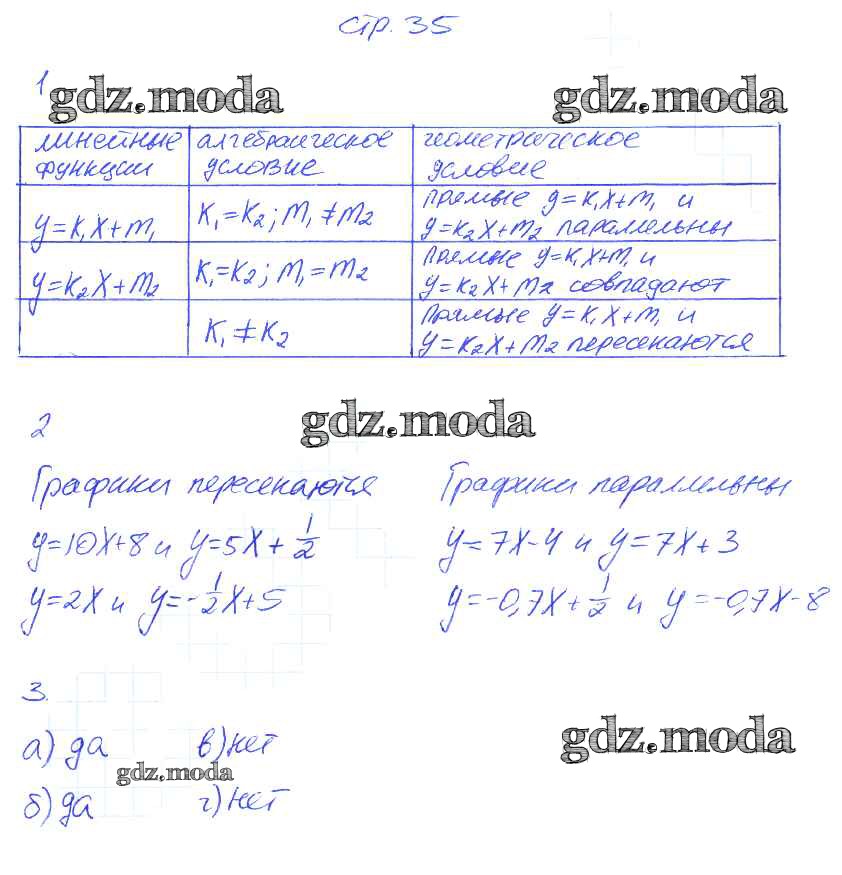 стр. 35
1
gdz.moda gdz.moda
линейные функции алгебраическое условие геометрическое условие
y=k₁x+m₁ k₁=k₂; m₁≠m₂ прямые y=k₁x+m₁ и
y=k₂x+m₂ параллельны
y=k₂x+m₂ k₁=k₂; m₁=m₂ прямые y=k₁x+m₁ и
y=k₂x+m₂ совпадают
k₁≠k₂ прямые y=k₁x+m₁ и
y=k₂x+m₂ пересекаются
2 gdz.moda
Графики пересекаются Графики параллельны
y=10x+8 и y=5x+1/2 y=7x-4 и y=7x+3
y=2x и y=-1/2x+5 y=-0,7x+1/2 и y=-0,7x-8
3.
а) да в) нет gdz.moda
gdz.moda
б) да г) нет